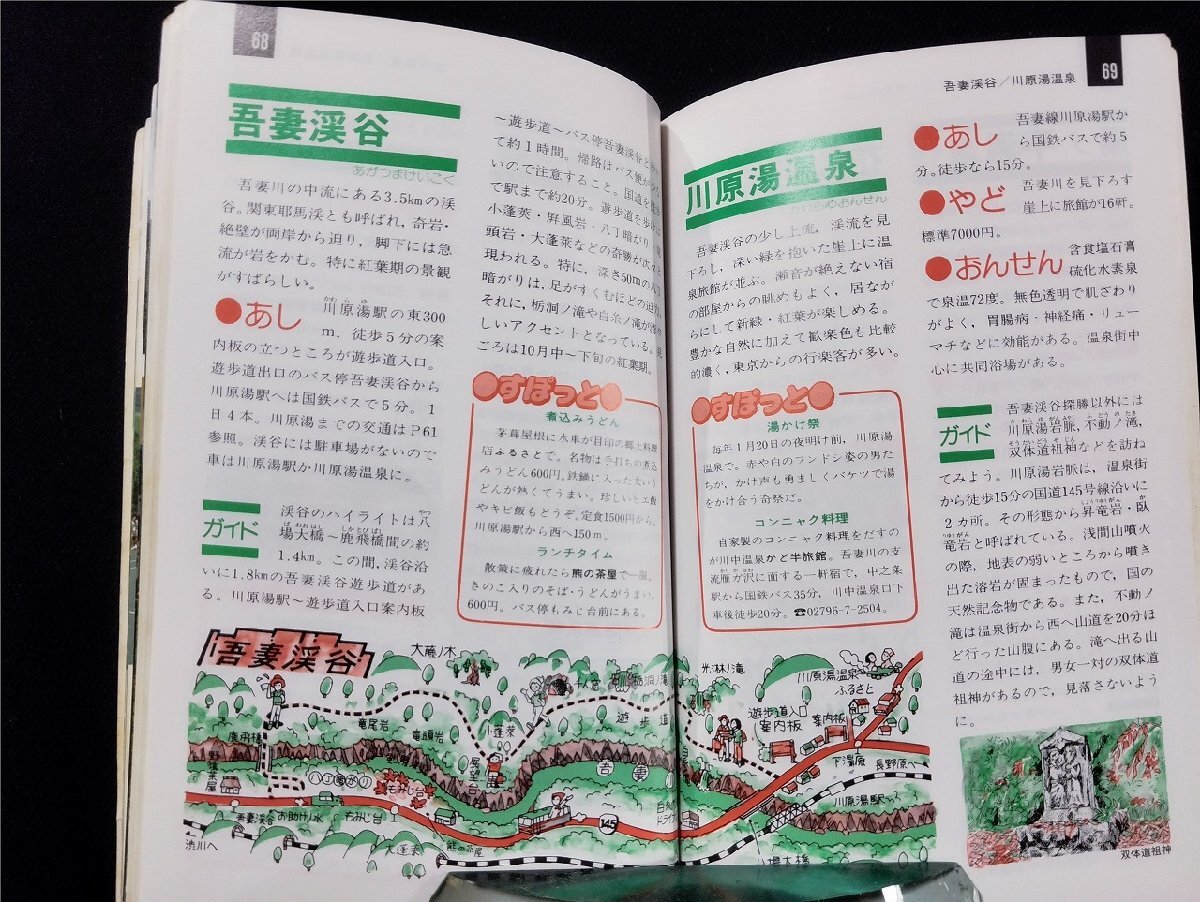 68
吾妻渓谷
あがつまけいこく
吾妻川の中流にある3.5kmの渓
谷。関東耶馬渓とも呼ばれ，奇岩・
絶壁が両岸から迫り，脚下には急
流が岩をかむ。特に紅葉期の景観
がすばらしい。
●あし 川原湯駅の東300
m，徒歩5分の案
内板の立つところが遊歩道入口。
遊歩道出口のバス停吾妻渓谷から
川原湯駅へは国鉄バスで5分。1
日4本。川原湯までの交通はP61
参照。渓谷には駐車場がないので
車は川原湯駅か川原湯温泉に。
ガイド
渓谷のハイライトは八
場大橋～鹿飛橋間の約
1.4km。この間，渓谷沿
いに1.8kmの吾妻渓谷遊歩道があ
る。川原湯駅～遊歩道入口案内板
～遊歩道～バス停吾妻渓谷と
て約1時間。帰路はバス便が
いので注意すること。国道を
で駅まで約20分。遊歩道を歩
小蓬萊・屛風岩・八丁暗がり
頭岩・大蓬萊などの奇勝が次
現われる。特に，深さ50mの
暗がりは，足がすくむほどの迫
それに，栃洞ノ滝や白糸ノ滝が
しいアクセントとなっている。
ごろは10月中～下旬の紅葉期。
●すぽっと●
煮込みうどん
茅葺屋根に水車が目印の郷土料理
店ふるさとで。名物は手打ちの煮込
みうどん600円。鉄鍋に入った太いう
どんが熱くてうまい。珍しいヒエ飯
やキビ飯もどうぞ。定食1500円から。
川原湯駅から西へ150m。
ランチタイム
散策に疲れたら熊の茶屋で一服。
きのこ入りのそば・うどんがうまい。
600円。バス停もみじ台前にある。
69
吾妻渓谷／川原湯温泉
川原湯温泉
かわらゆおんせん
吾妻渓谷の少し上流，渓流を見
下ろし，深い緑を抱いた崖上に温
泉旅館が並ぶ。瀬音が絶えない宿
の部屋からの眺めもよく，居なが
らにして新緑・紅葉が楽しめる。
豊かな自然に加えて歓楽色も比較
的濃く，東京からの行楽客が多い。
●すぽっと●
湯かけ祭
毎年1月20日の夜明け前，川原湯
温泉で。赤や白のフンドシ姿の男た
ちが，かけ声も勇ましくバケツで湯
をかけ合う奇祭だ。
コンニャク料理
自家製のコンニャク料理をだすの
が川中温泉かど半旅館。吾妻川の支
流雁ガ沢に面する一軒宿で，中之条
駅から国鉄バス35分，川中温泉口下
車後徒歩20分。☎02796-7-2504。
●あし 吾妻線川原湯駅か
ら国鉄バスで約5
分。徒歩なら15分。
●やど 吾妻川を見下ろす
崖上に旅館が16軒。
標準7000円。
●おんせん 含食塩石膏
硫化水素泉
で泉温72度。無色透明で肌ざわり
がよく，胃腸病・神経痛・リュー
マチなどに効能がある。温泉街中
心に共同浴場がある。
ガイド
吾妻渓谷探勝以外には
川原湯岩脈，不動ノ滝，
双体道祖神などを訪ね
てみよう。川原湯岩脈は，温泉街
から徒歩15分の国道145号線沿いに
2カ所。その形態から昇竜岩・臥
竜岩と呼ばれている。浅間山噴火
の際，地表の弱いところから噴き
出た溶岩が固まったもので，国の
天然記念物である。また，不動ノ
滝は温泉街から西へ山道を20分ほ
ど行った山腹にある。滝へ出る山
道の途中には，男女一対の双体道
祖神があるので，見落さないよう
に。
吾妻渓谷
大藤ノ木
竜尾岩
竜頭岩
小蓬萊
遊歩道
鹿飛橋
展望台
八丁暗がり
もみじ台
吾妻渓谷
お助け水
もみじ台
大蓬萊
熊の茶屋
渋川へ
吾妻
145
川原湯温泉
ふるさと
遊歩道入口
案内板
案内板
下湯原
長野原へ
川原湯駅
八場大橋
双体道祖神